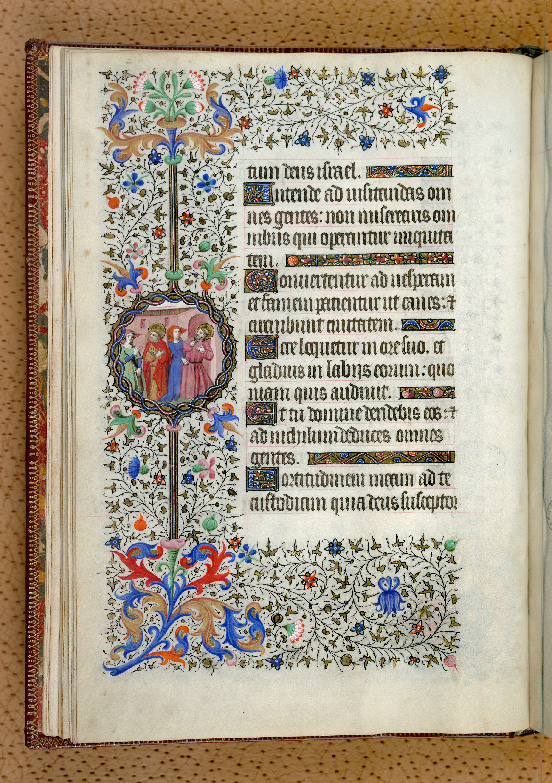 tum deus israel.
Intende ad uisitandas om
nes gentes: non miserearis om
nibus qui operantur iniquita
tem.
Conuertentur ad uesperam
et famem patientur ut canes: et
circuibunt ciuitatem.
Ecce loquetur in ore suo. et
gladius in labijs eorum: quo
niam quis audiuit.
Et tu domine deridebis eos: et
ad nichilum deduces omnes
gentes.
Fortitudinem meam ad te
custodiam quia deus susceptor